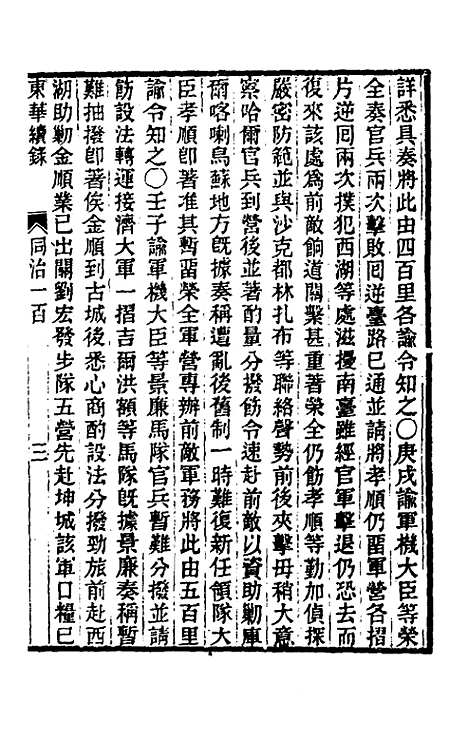 詳悉具奏將此由四百里各諭令知之〇庚戌諭軍機大臣等榮
全奏官兵兩次擊敗回逆臺路已通並請將孝順仍畱軍營各摺
片逆回兩次撲犯西湖等處滋擾南臺雖經官軍擊退仍恐去而
復來該處爲前敵餉道關繫甚重著榮全仍飭孝順等勤加偵探
嚴密防範並與沙克都林扎布等聯絡聲勢前後夾擊毋稍大意
察哈爾官兵到營後並著酌量分撥飭令速赴前敵以資助勦庫
爾喀喇烏蘇地方旣據奏稱遭亂後舊制一時難復新任領隊大
臣孝順卽著准其暫畱榮全軍營專辦前敵軍務將此由五百里
諭令知之〇壬子諭軍機大臣等景廉馬隊官兵暫難分撥並請
飭設法轉運接濟大軍一摺吉爾洪額等馬隊旣據景廉奏稱暫
難抽撥卽著俟金順到古城後悉心商酌設法分撥勁旅前赴西
湖助勦金順業已出關劉宏發步隊五營先赴坤城該軍口糧已
東華續錄
同治一百
三